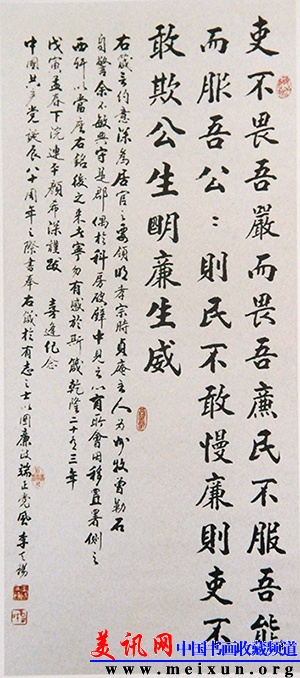 吏不畏吾嚴而畏吾廉民不服吾能
而服吾公〻則民不敢慢廉則吏不
敢欺公生明廉生威
右箴言約意深為居官之要領明孝宗時貞庵主人為州牧曾勒石
自警余不敏典守是郡偶於科房破壁中見之以有所會因移置署側之
西軒以當座右銘後之来者寧勿有感於斯箴乾隆二十又三年
戊寅孟春下浣連平顏希深謹跋 喜逢纪念
中國共产党诞辰八十周年之際書奉右箴於有志之士以圖廉政端正党風 李
美讯网 中国书画收藏频道
www.meixun.org